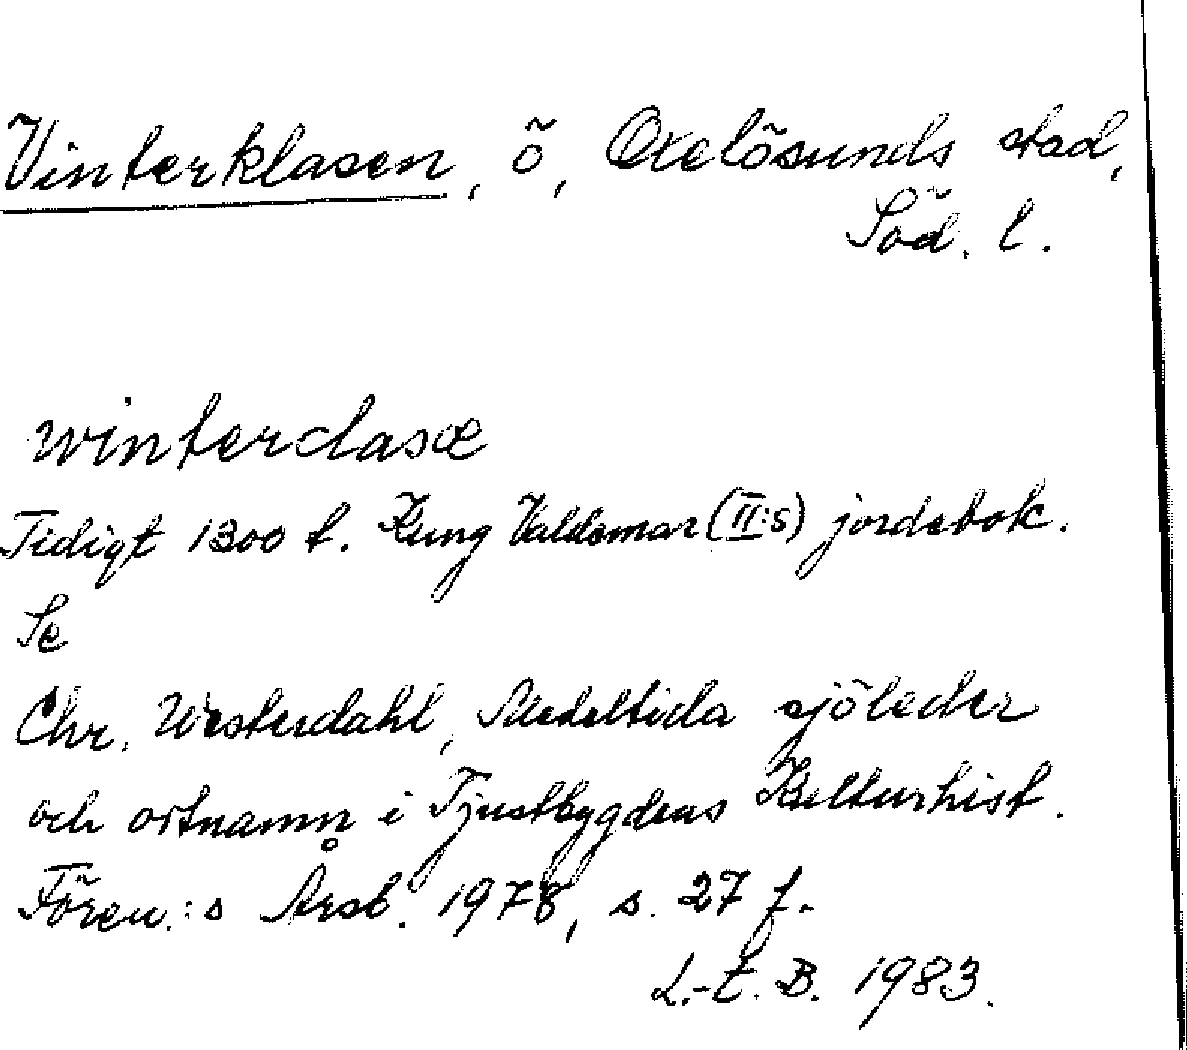 Vinterklasen, ö, Oxelösunds stad,
Söd. l.
winterclasæ
Tidigt 1300 t. Kung Valdemar (II:s) jordebok.
Se
Chr. Westerdahl, Medeltida sjöleder
och ortnamn i Tjustbygdens Kulturhist.
Fören.:s Årsb. 1978, s. 27 f.
L.-E. B. 1983.